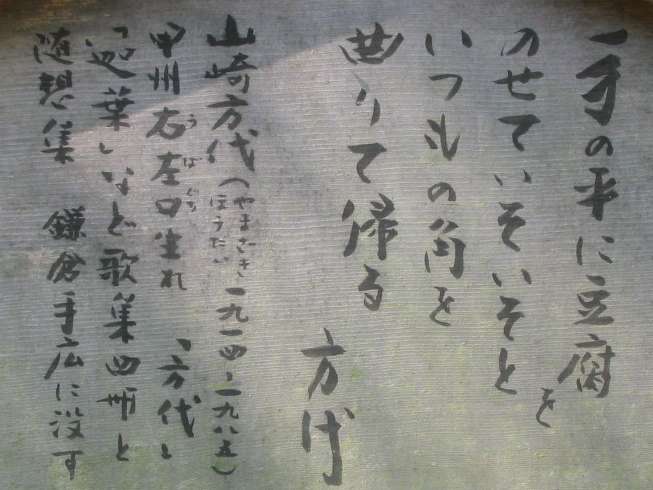 手の平に豆腐を
のせていそいそと
いつもの角を
曲りて帰る
方代
山崎方代(やまざきほうだい 一九一四~一九八五)
甲州右左口(うばぐち)生れ 「方代」
「迦葉」など歌集四冊と
随想集 鎌倉手広に没す